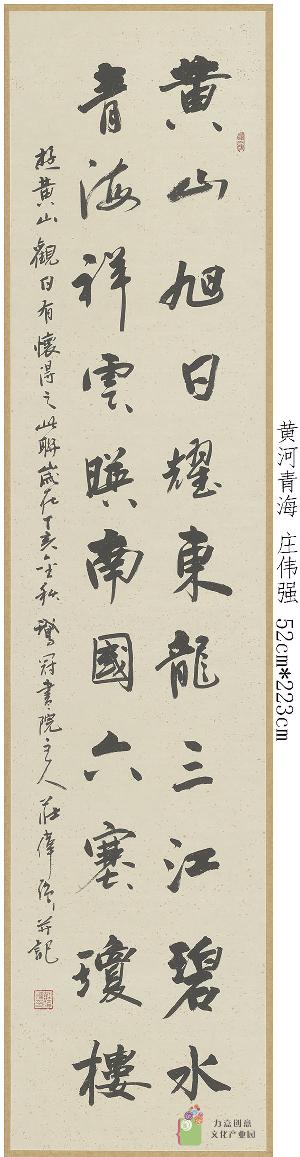 黄山旭日耀東龍三江碧水
青海祥雲暎南國六寨瓊樓
游黄山觀日有懷得之此聯歲在丁亥金秋鵞冠書院主人莊偉强並記
黄河青海 庄伟强 52cm*223cm
力嘉创意
文化产业园